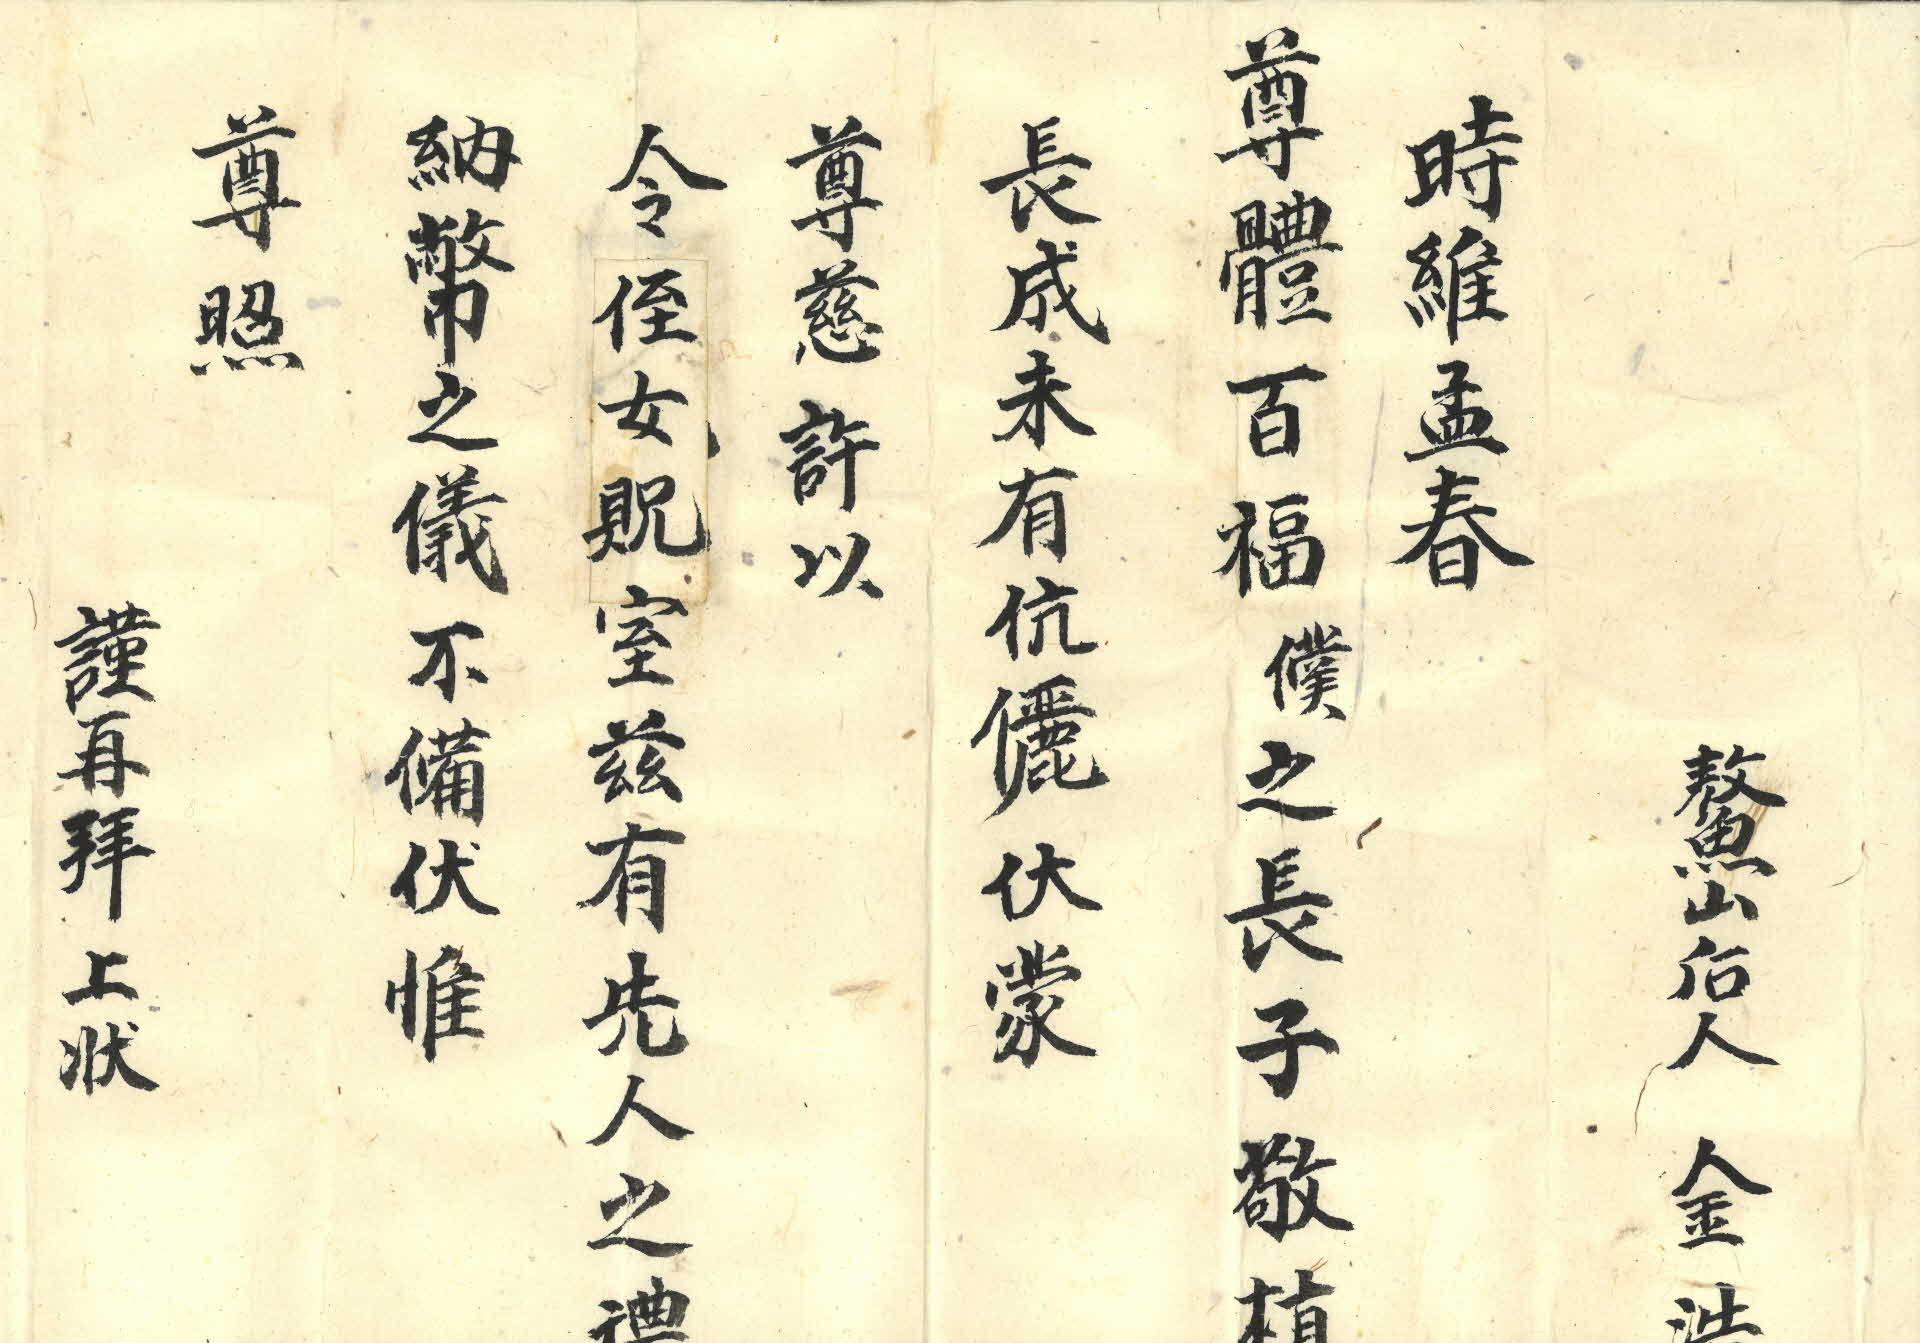 鰲山后人 金浩
時維孟春
尊體百福僕之長子敬植
長成未有伉儷伏蒙
尊慈許以
令侄女貺室玆有先人之禮
納幣之儀不備伏惟
尊照
謹再拜上狀